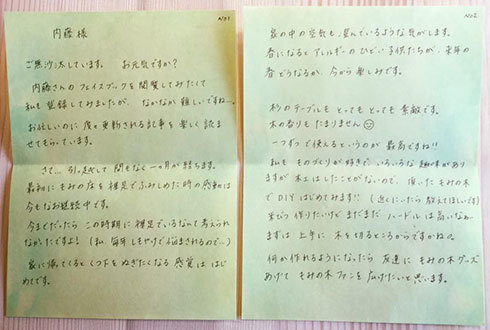 No1
内藤 様
ご無沙汰しています。 お元気ですか?
内藤さんの フェイスブックを 閲覧してみたくて
私も 登録してみましたが、なかなか 難しいですね…。
お忙しいのに 度々 更新される記事を 楽しく 読ま
せてもらっています。
さて… 引っ越して 間もなく 一ヶ月が 経ちます。
最初に もみの床を 裸足で ふみしめた 時の 感動は
今もなお継続中です。
今まで だったら この時期に 裸足でいるなんて 考えられ
なかったですよ! (私、毎年 しもやけで 悩まされるので…)
家に 帰ってくると くつ下を ぬぎたくなる 感覚は はじ
めてです。
No2
家の中の 空気も 澄んでいるような 気がします。
春になると アレルギーの ひどい 子供たちが、来年の
春 どうなるか、今から 楽しみです。
杉の テーブルも とっても とっても 素敵です。
木の香りも たまりません☺
一つずつ 使えるというのが 最高ですね!!
私も ものづくりが 好きで、いろいろな 趣味があり
ますが 木工は したことがないので、頂いた もみの木
で DIY はじめてみます!! (近くにいたら 教えてほしいです)
米びつ 作りたいけど まだまだ ハードルは 高いなぁ…
まずは 上手に 木を 切るところからですかね。
何か 作れるようになったら 友達に もみの木グッズ
あげて もみの木ファンを 広げたいと思います。